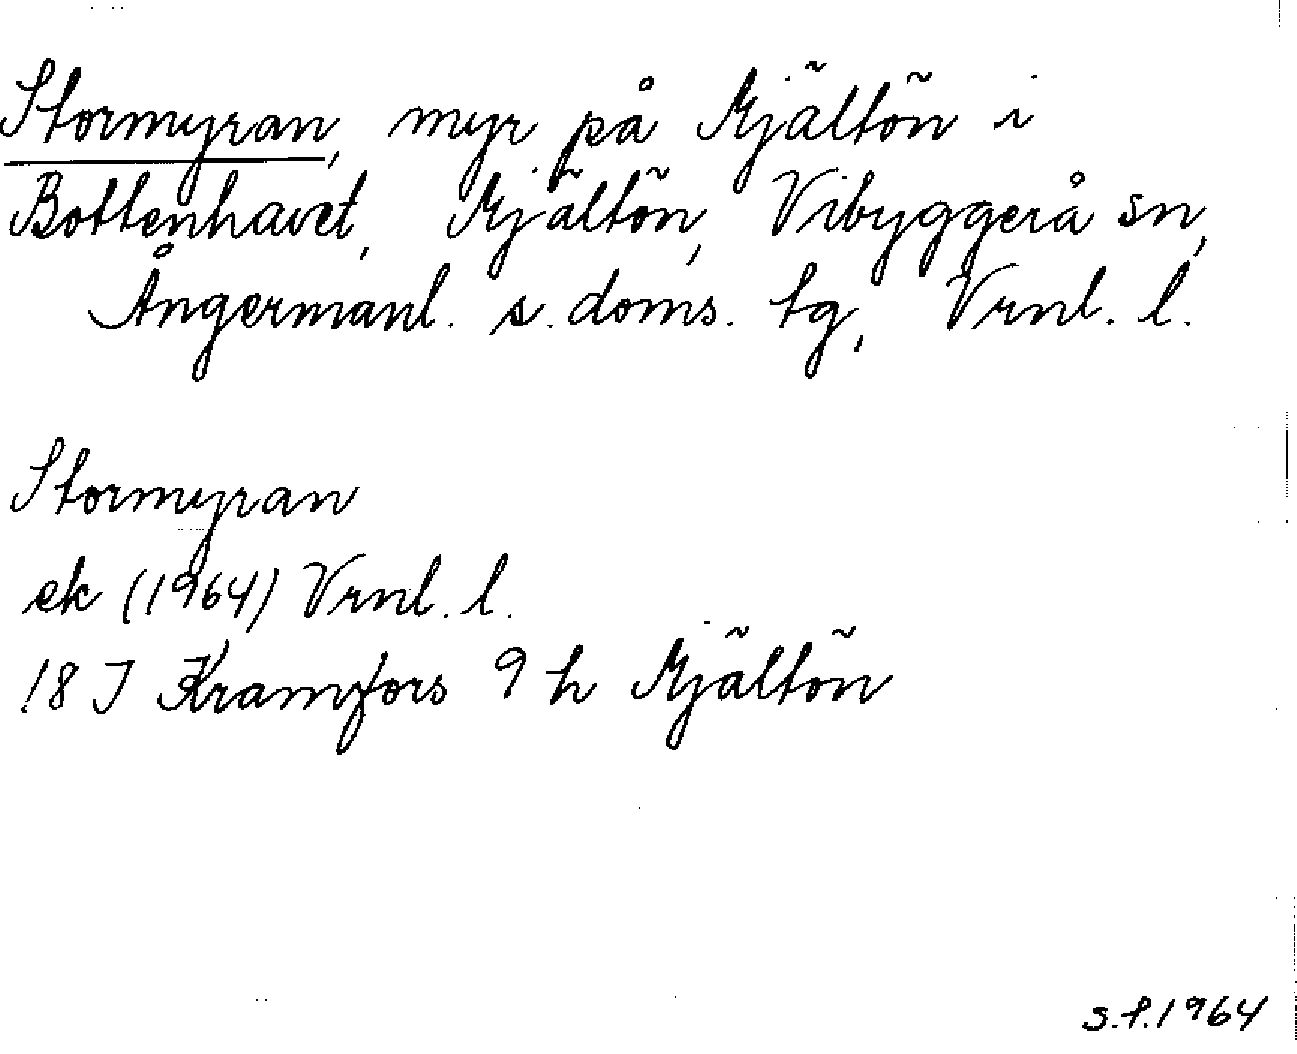 Stormyran, myr på Mjältön i
Bottenhavet, Mjältön, Vibyggerå sn,
Ångermanl. s. doms. tg, Vrnl. l.
Stormyran
ek (1964) Vrnl. l.
18 I Kramfors 9 h Mjältön
s.f.1964